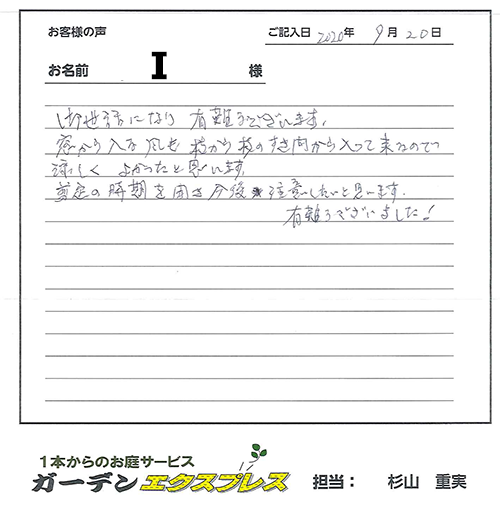 お客様の声
ご記入日 2020年 9月 20日
お名前 I 様
お世話になり 有難うございます。
窓から入る風も 枝から枝のすき間から入って来るので
涼しく よかったと思います。
剪定の時期を聞き今後 注意したいと思います。
有難うございました!
1本からのお庭サービス
ガーデンエクスプレス 担当: 杉山 重実